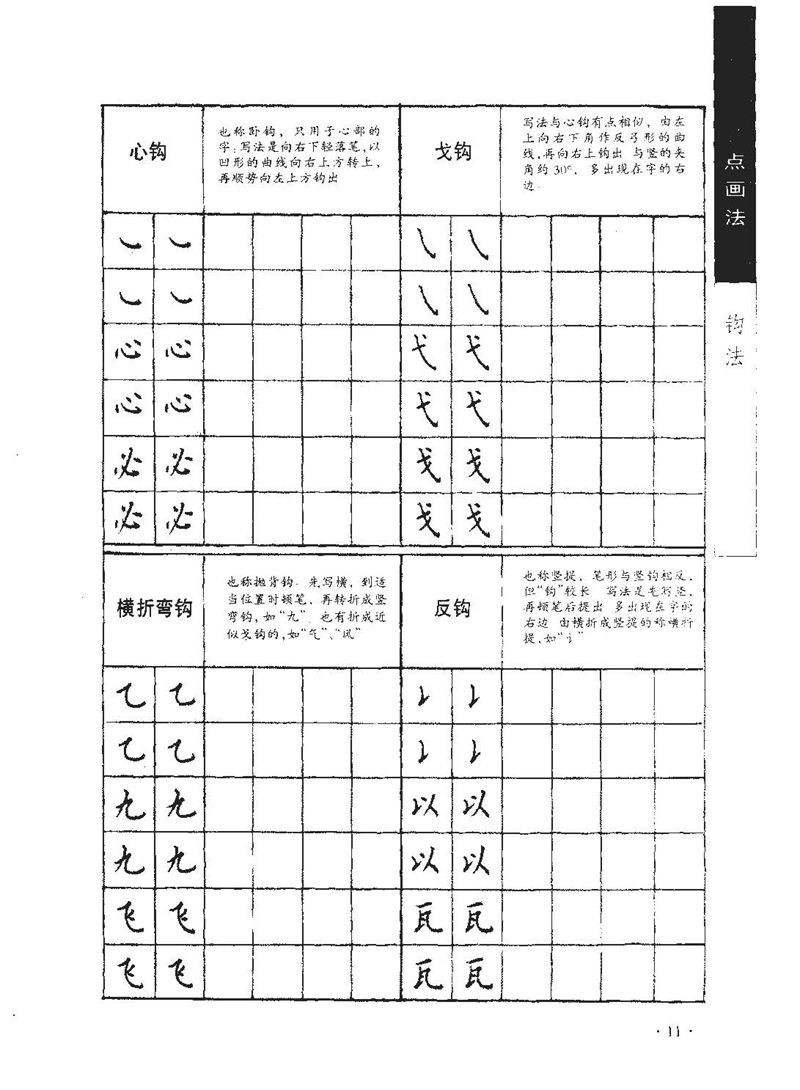 点画法
钩法
心钩
也称卧钩，只用于心部的
字.写法是向右下轻落笔,以
凹形的曲线向右上方转上，
再顺势向左上方钩出
戈钩
写法与心钩有点相似，由左
上向右下角作反弓形的曲
线,再向右上钩出 与竖的夹
角约30°，多出现在字的右
边.
㇃ ㇃
㇃ ㇃
心 心
心 心
必 必
必 必
㇂ ㇂
㇂ ㇂
弋 弋
弋 弋
戈 戈
戈 戈
横折弯钩
也称抛背钩. 先写横，到适
当位置时顿笔，再转折成竖
弯钩，如“九”. 也有折成近
似戈钩的,如“气”、“风”
反钩
也称竖提，笔形与竖钩相反，
但“钩”较长 写法是先写竖，
再顿笔后提出 多出现在字的
右边 由横折成竖提的称横折
提,如“讠”
乙 乙
乙 乙
九 九
九 九
飞 飞
飞 飞
㇙ ㇙
㇙ ㇙
以 以
以 以
瓦 瓦
瓦 瓦
·11·